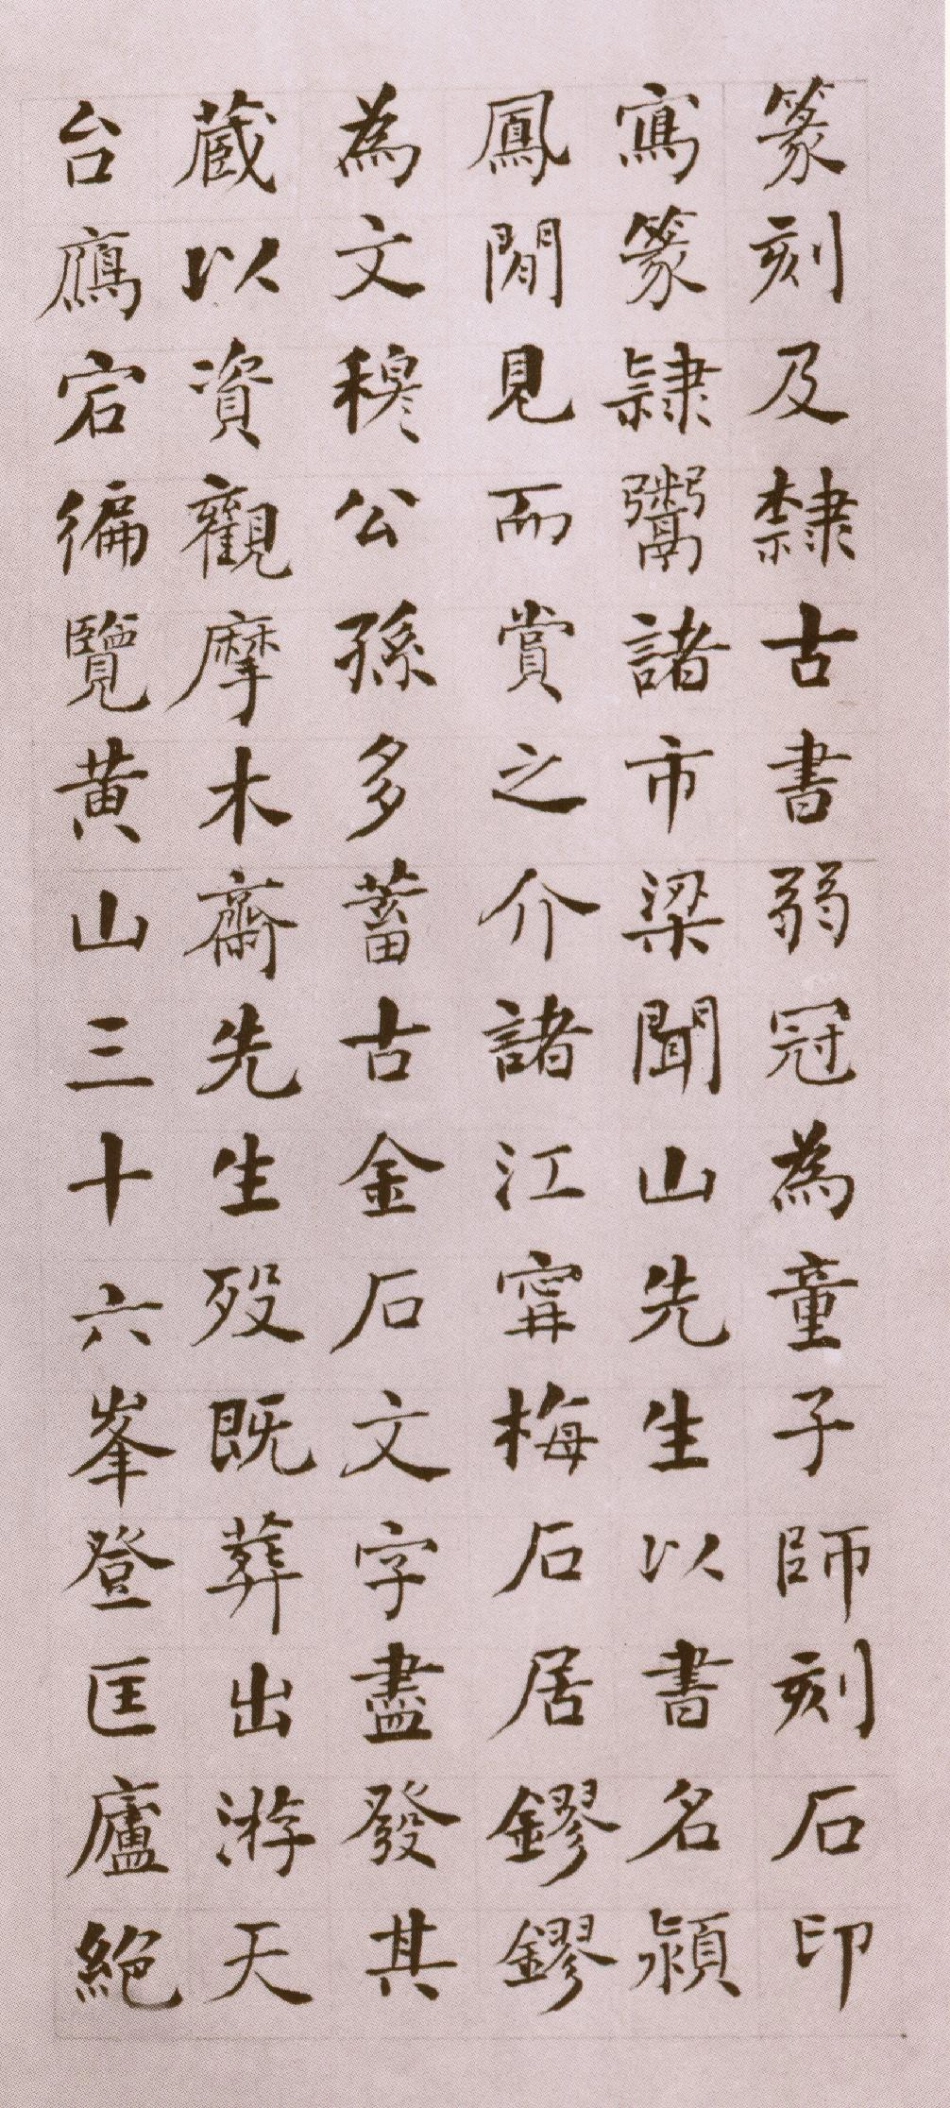 篆刻及隸古書弱冠為童子師刻石印
寫篆隷鬻諸市梁聞山先生以書名潁
鳳閒見而賞之介諸江寗梅石居鏐鏐
為文穆公孫多蓄古金石文字盡發其
藏以資觀摩木齋先生歿既葬出游天
台鴈宕徧覽黃山三十六峯登匡廬絕